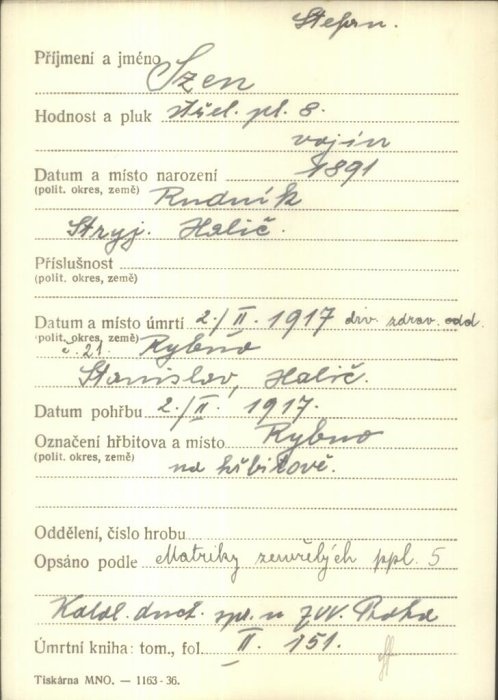 Stefan.
Příjmení a jméno Szen
Hodnost a pluk střel. pl. 8.
vojín
Datum a místo narození 1891
(polit. okres, země) Rudnik
Stryj. Halič.
Příslušnost
(polit. okres, země)
Datum a místo úmrtí 2./II. 1917 div. zdrav. odd.
(polit. okres, země) č. 21. Rybno
Stanislav, Halič.
Datum pohřbu 2./II. 1917.
Označení hřbitova a místo Rybno
(polit. okres, země) na hřbitově.
Oddělení, číslo hrobu
Opsáno podle Matriky zemřelých ppl. 5
duch. spr. u Praha
Úmrtní kniha: tom., fol. II. 151.
Tiskárna MNO. — 1163-36.